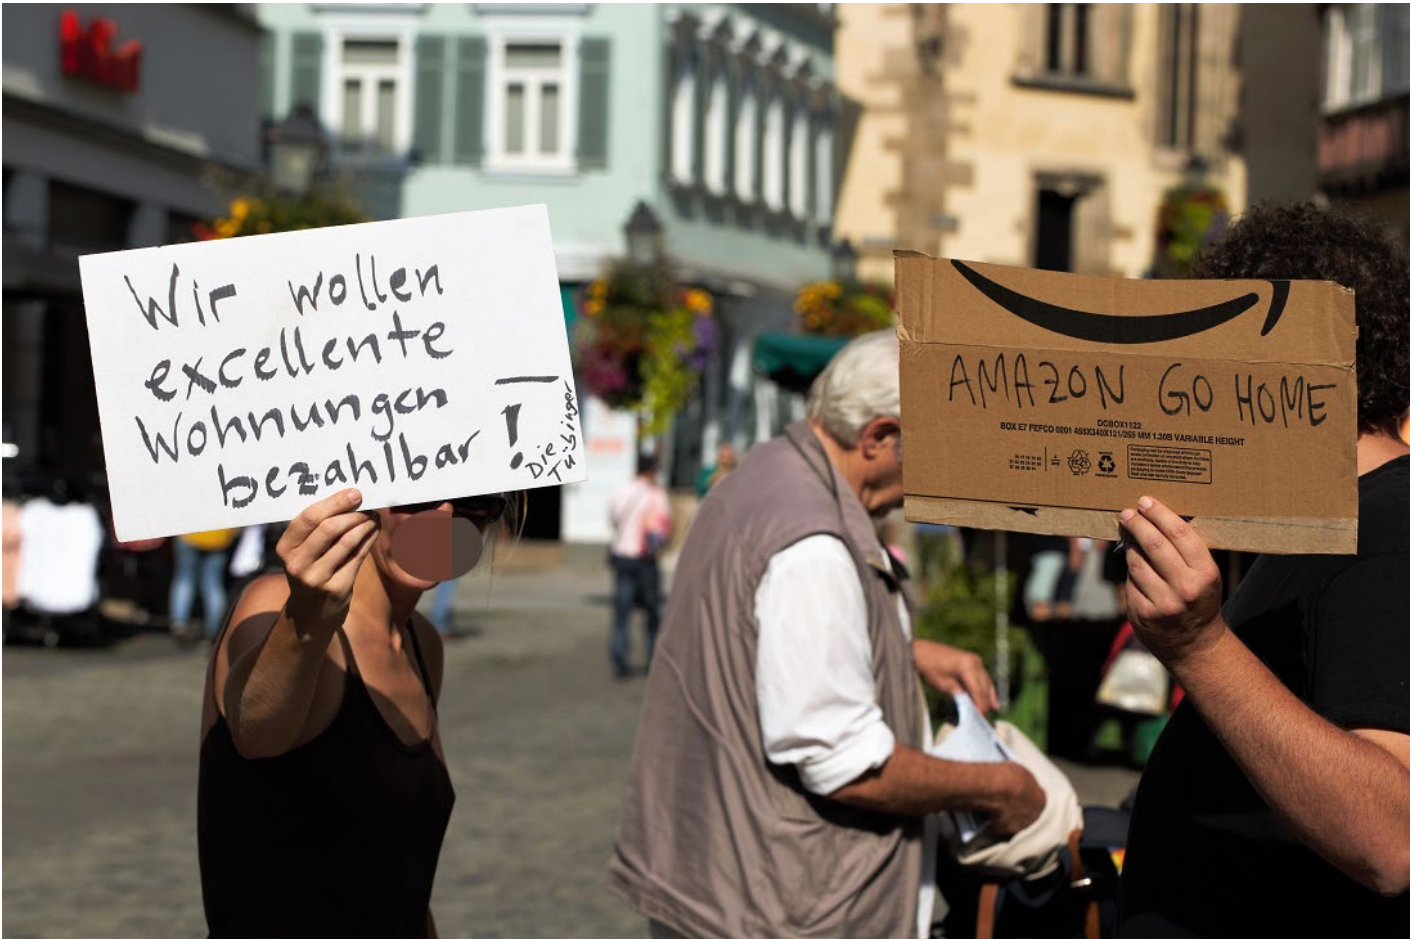 Wir wollen
excellente
Wohnungen
bezahlbar !
Die
Tübinger
AMAZON GO HOME
DCBOX1122
BOX E7 FEFCO 0201 455X340X121/265 MM 1.30B VARIABLE HEIGHT